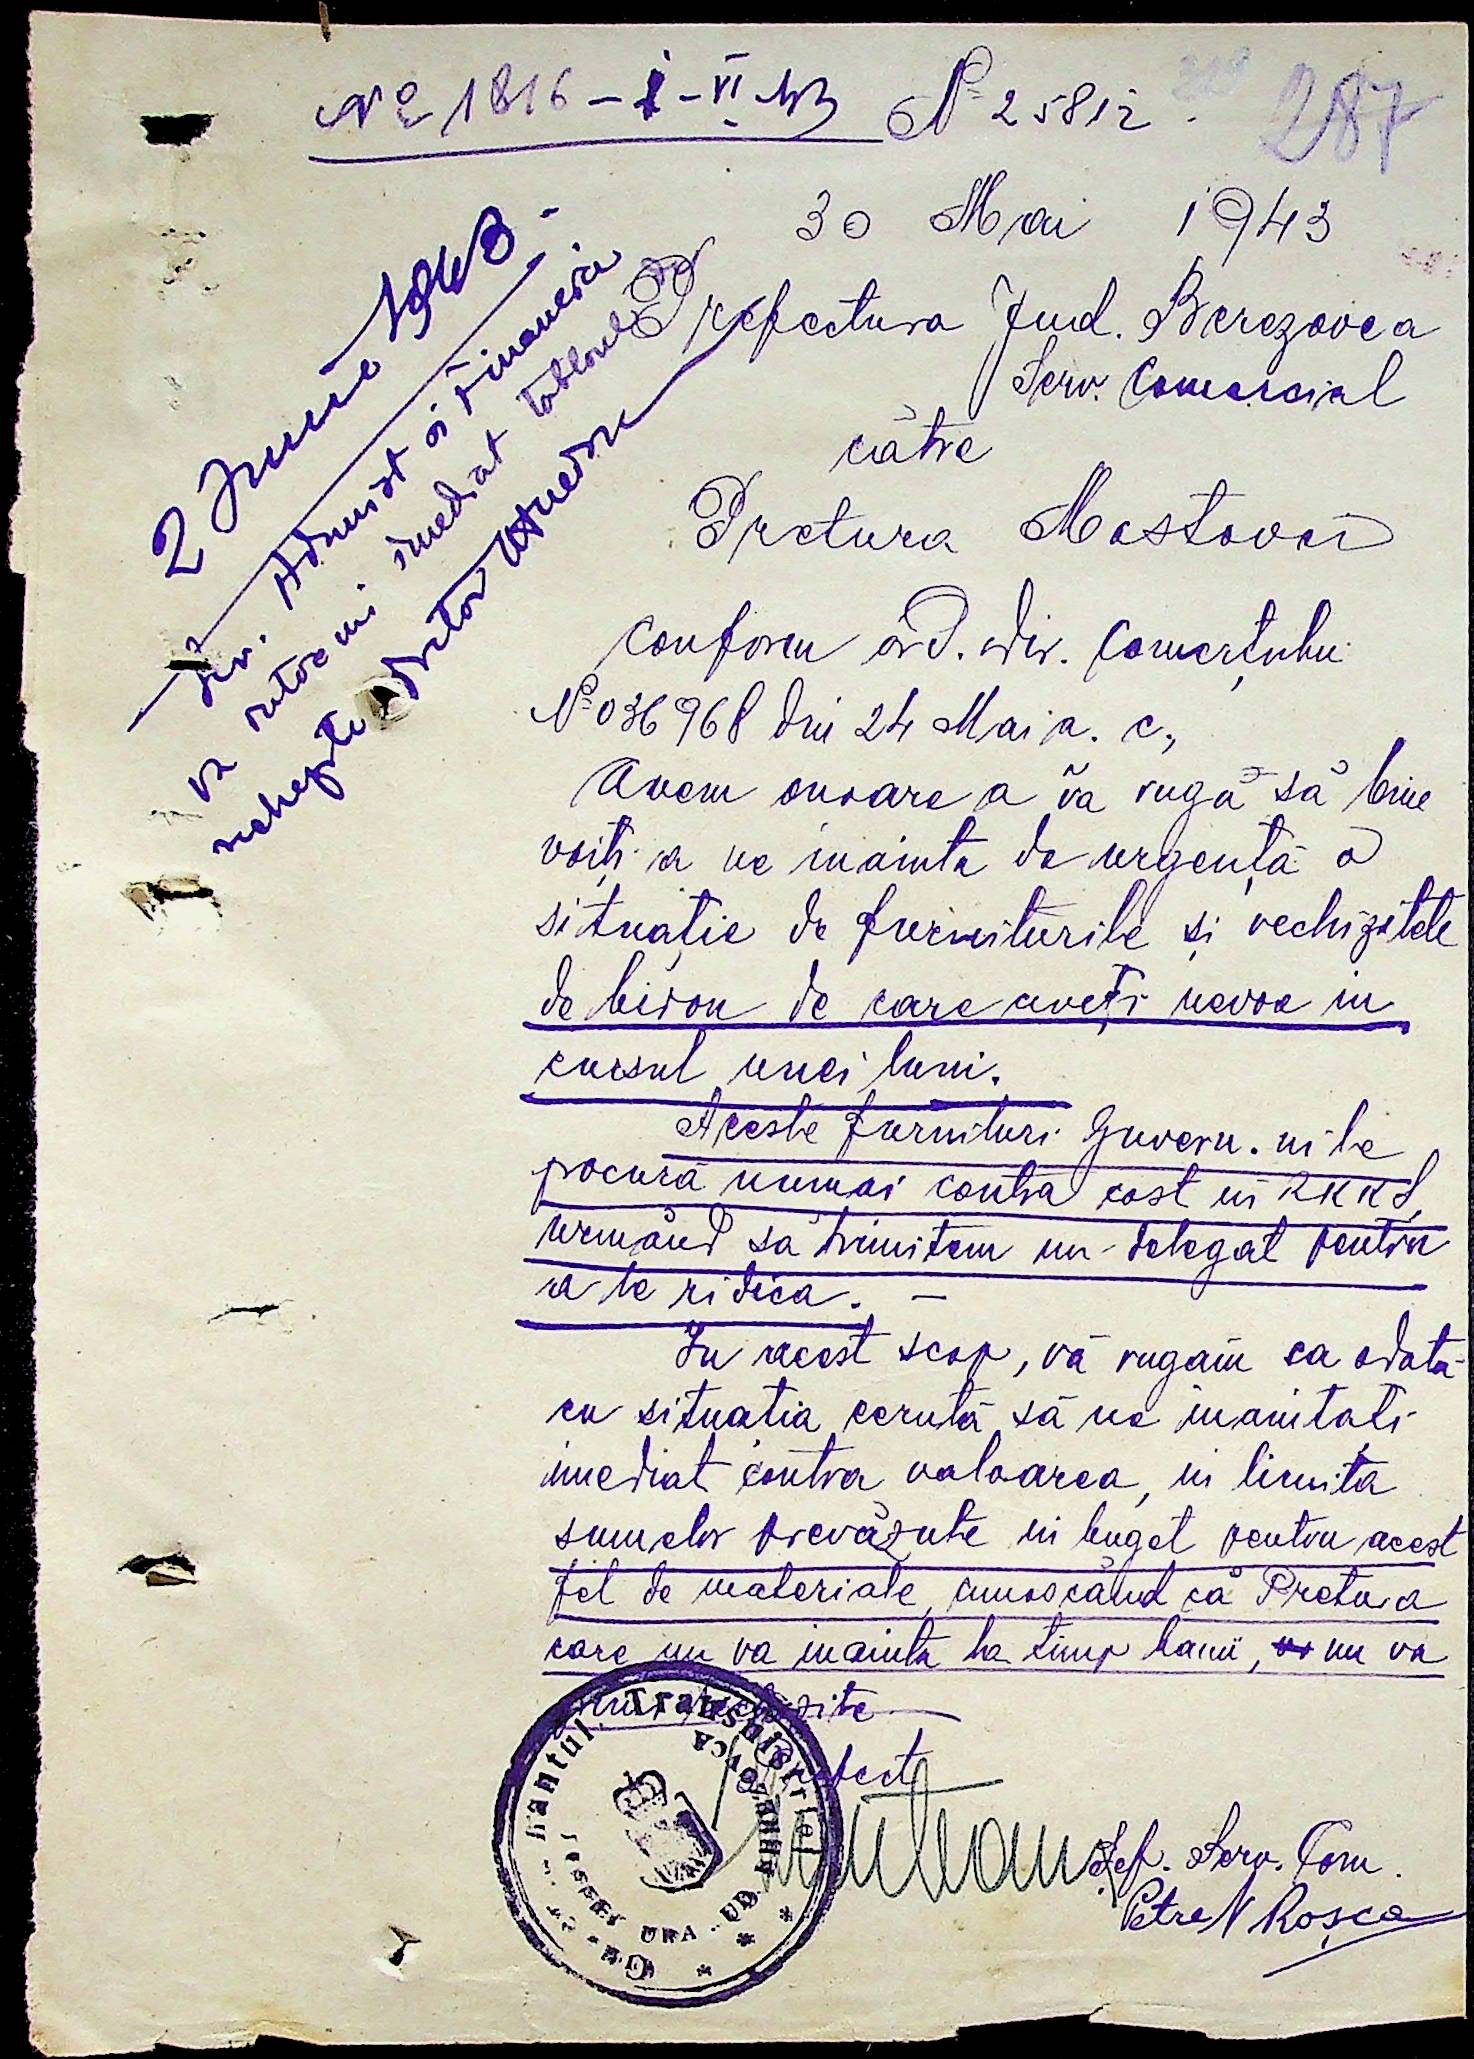 No 1816 - 1 - VI 43 No 25812.
287
30 Mai 1943
Prefectura Jud. Berezovca
Serv. Comercial
către
Pretura Mostovoi
2 Iunie 1943.-
Serv. Administ și Financiar
va întocmi imediat tabloul
Pretor
Conform ord. Dir. Comerțului
No 036968 din 24 Mai a. c.,
Avem onoare a vă rugă să bine
voiți a ne inainta de urgență o
situație de furniturile și rechizitele
de birou de care aveți nevoe in
cursul unei luni.
Aceste furnituri Guvern. ni le
procură numai contra cost in RKKS,
urmând să trimitem un delegat pentru
a le ridica. -
In acest scop, vă rugăm ca odată
cu situația cerută să ne inaintați
imediat contra valoarea, in limita
sumelor prevăzute in buget pentru acest
fel de materiale, cunoscând că Pretura
care nu va inainta la timp banii, nu va
primi rechizite
Prefect
Șef. Serv. Com.
Petre N Roșca
Transnistriei